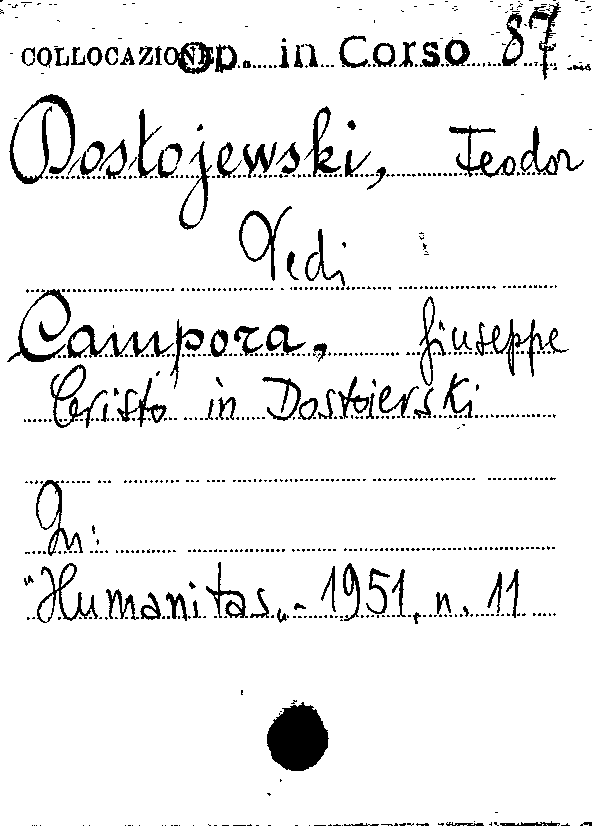 COLLOCAZIONE Op. in Corso 87
Dostojewski, Teodor
Vedi
Campora, Giuseppe
Cristo in Dostoierski
In:
"Humanitas„ - 1951, n. 11